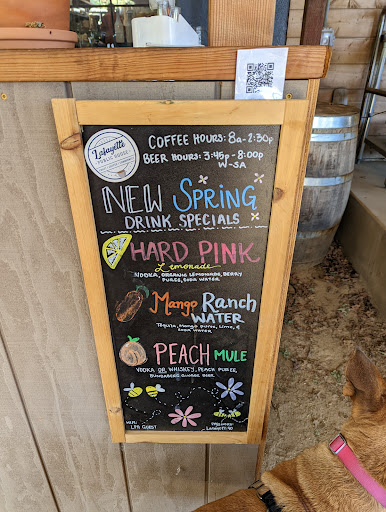 Lafayette
PUBLIC HOUSE
COFFEE HOURS: 8a-2:30p
BEER HOURS: 3:45p-8:00p
W-SA
NEW SPRING
DRINK SPECIALS
HARD PINK
Lemonade
VODKA, ORGANIC LEMONADE, BERRY
PUREE, SODA WATER
Mango Ranch
WATER
Tequila, Mango puree, Lime, &
SODA WATER
PEACH MULE
VODKA OR WHISKEY, PEACH PUREE,
BUNDABERG GINGER BEER
WIFI
LPH GUEST